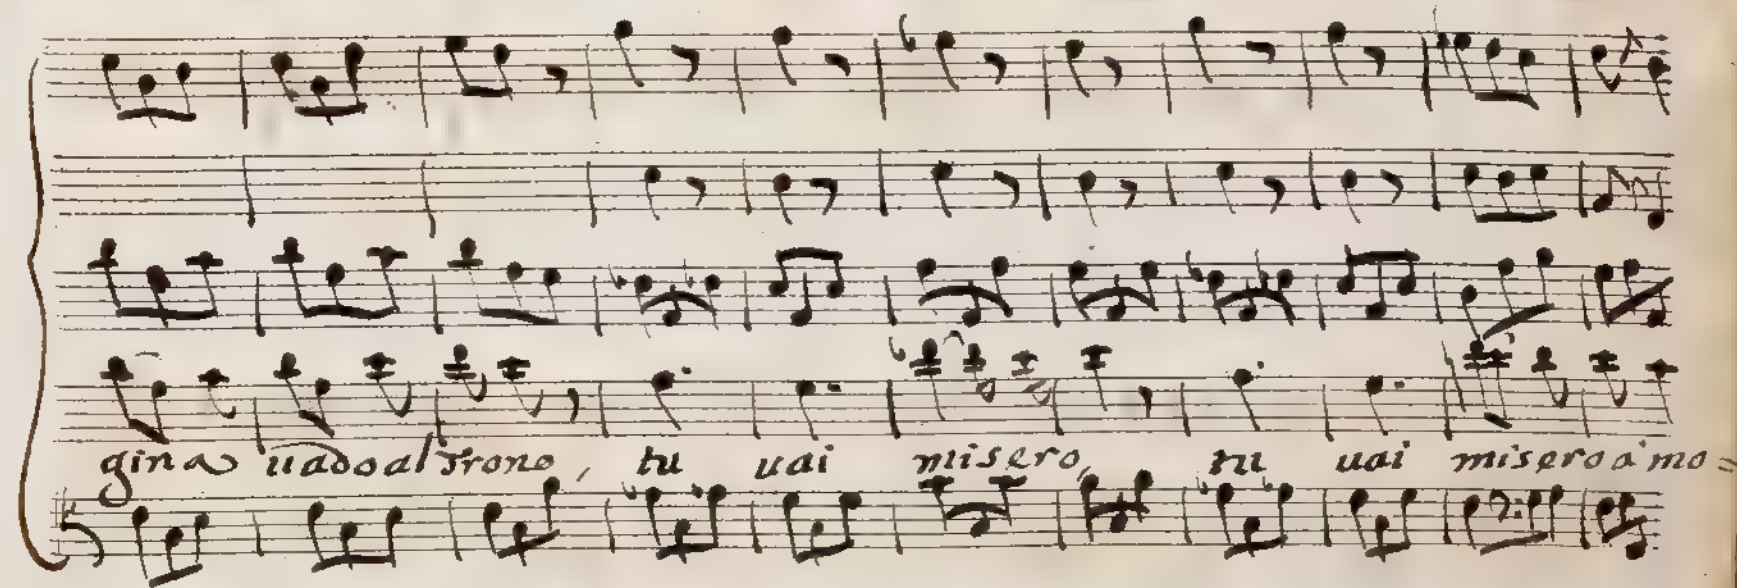 gina uado al Trono, tu uai misero, tu uai misero à mo=